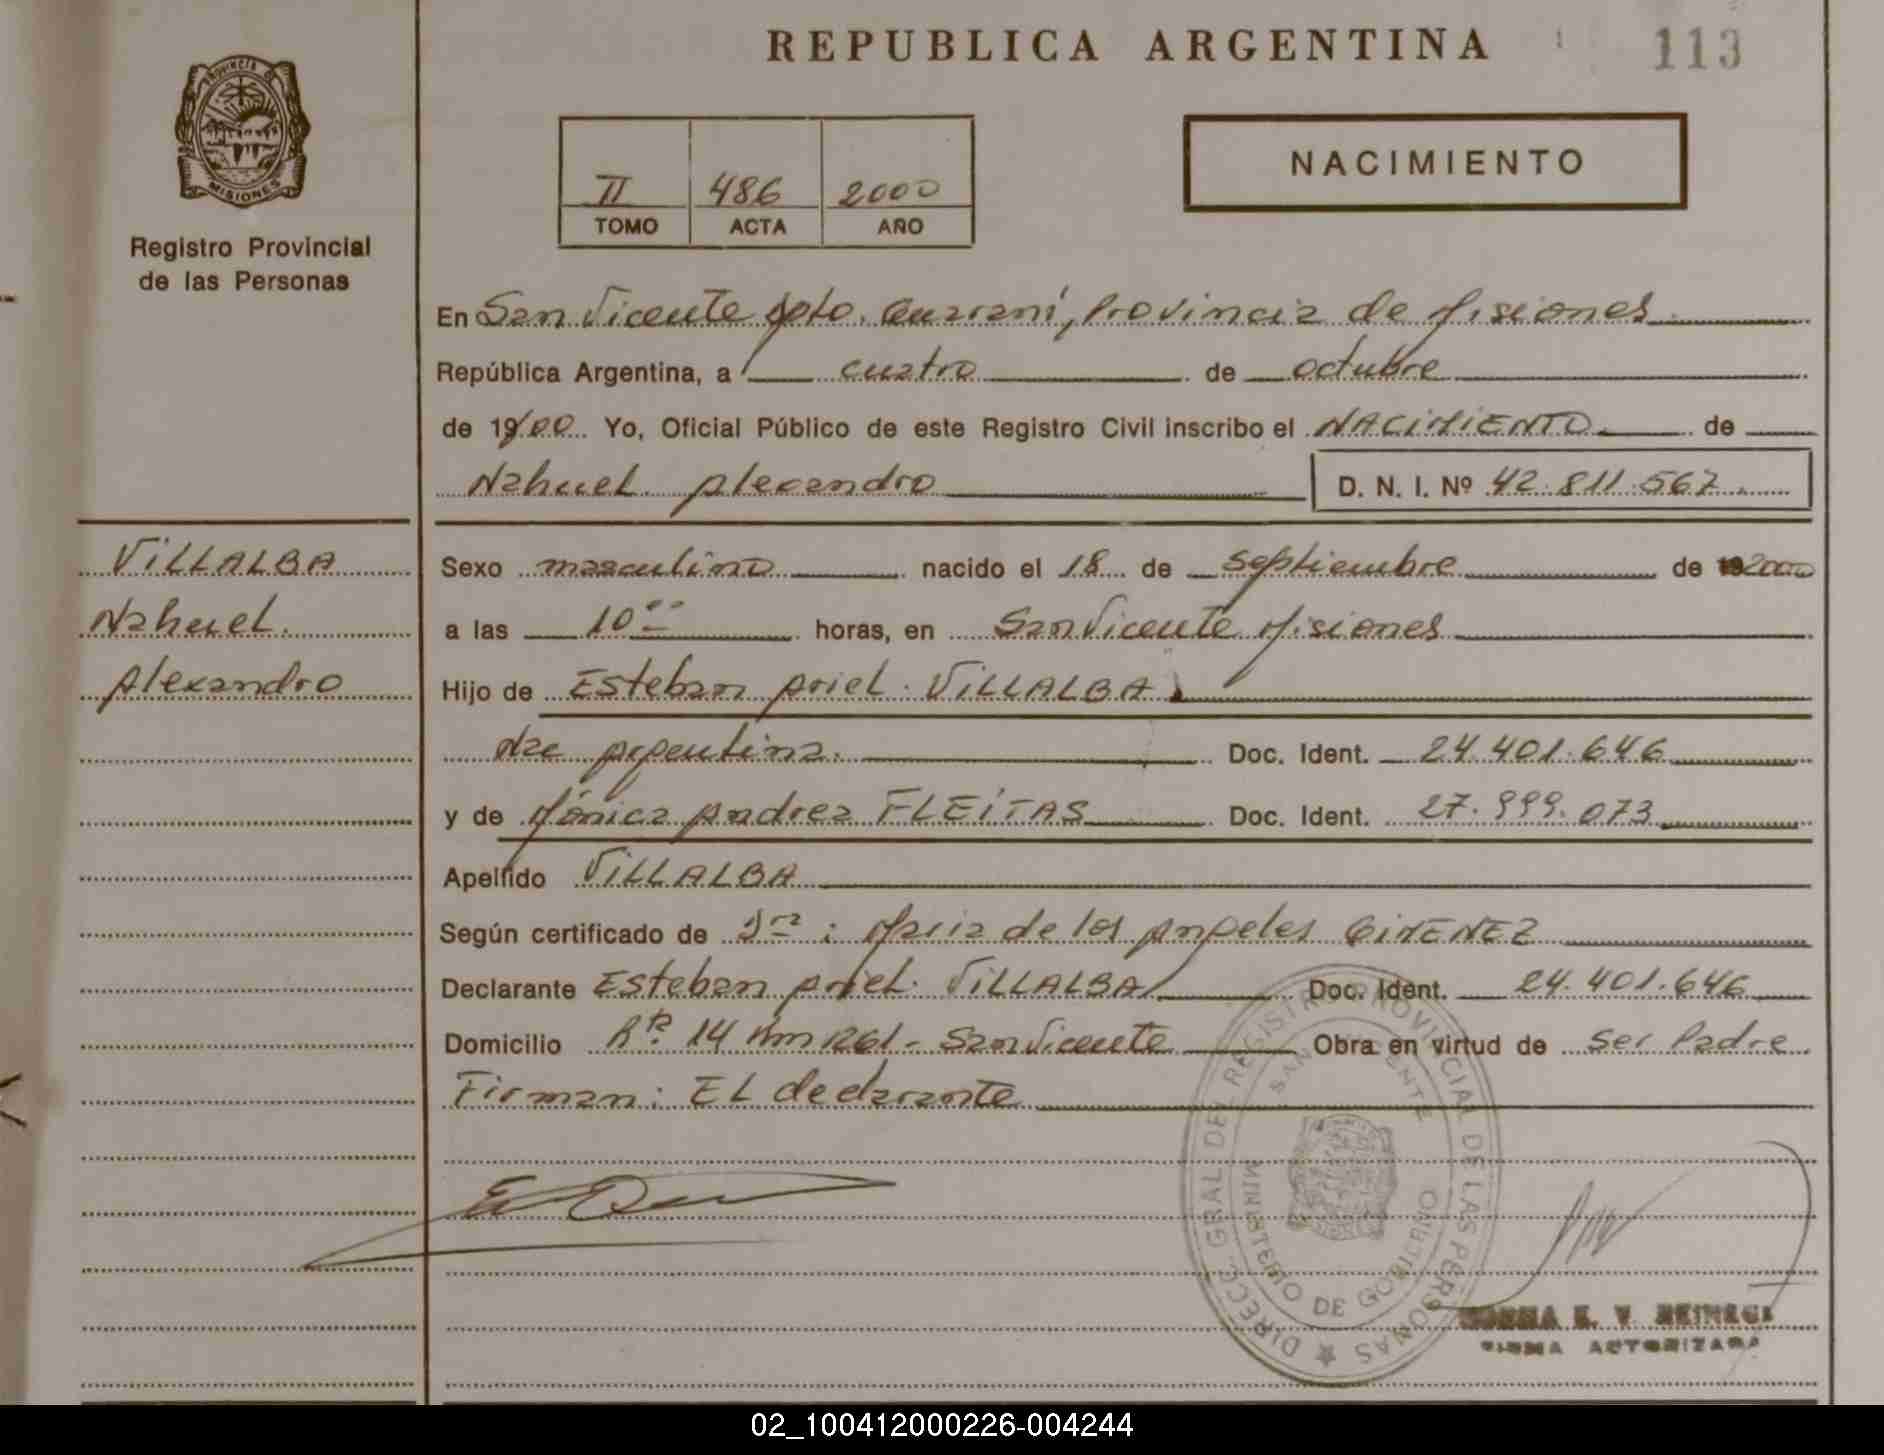 REPUBLICA ARGENTINA
113
PROVINCIA DE
MISIONES
Registro Provincial
de las Personas
II 486 2000
TOMO ACTA AÑO
NACIMIENTO
En San Vicente Dpto. Guaraní, Provincia de Misiones
República Argentina, a cuatro de octubre
de 19/00 Yo, Oficial Público de este Registro Civil inscribo el NACIMIENTO de
Nahuel Alexandro D. N. I. Nº 42.811.567
VILLALBA
Nahuel
Alexandro
Sexo masculino nacido el 18 de septiembre de 2000
a las 10 horas, en San Vicente Misiones
Hijo de Esteban Ariel VILLALBA
Nac Argentina. Doc. Ident. 24.401.646
y de Mónica Andrea FLEITAS Doc. Ident. 27.999.073
Apellido VILLALBA
Según certificado de Dra: María de los Angeles GIMENEZ
Declarante Esteban Ariel VILLALBA Doc. Ident. 24.401.646
Domicilio 14 Km 1261 - San Vicente Obra en virtud de ser Padre
Firman: EL declarante
DIRECC. GRAL DEL REGISTRO PROVINCIAL DE LAS PERSONAS
SAN VICENTE
MINISTERIO DE GOBIERNO
NORMA V.
FIRMA AUTORIZADA
02_100412000226-004244